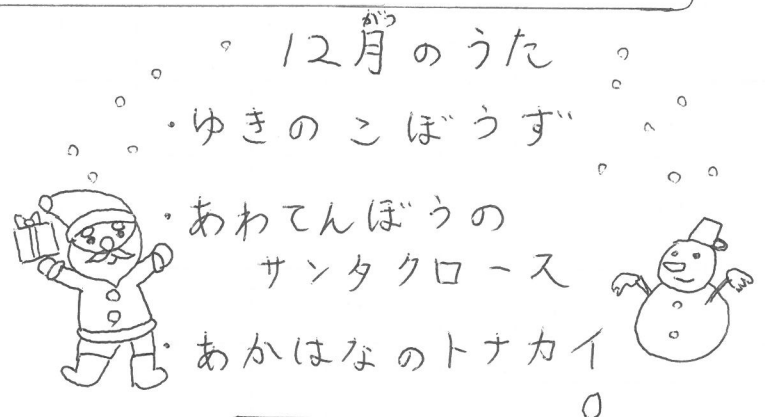 12月のうた
・ゆきのこぼうず
・あわてんぼうの
サンタクロース
・あかはなのトナカイ